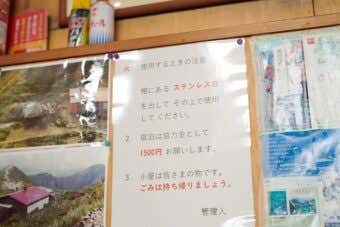 火 使用するときの注意
棚にある ステンレス台
を出して その上で使用
してください。
2. 宿泊は協力金として
1500円 お願いします。
3. 小屋は皆さまの物です。
ごみは持ち帰りましょう。
管理人